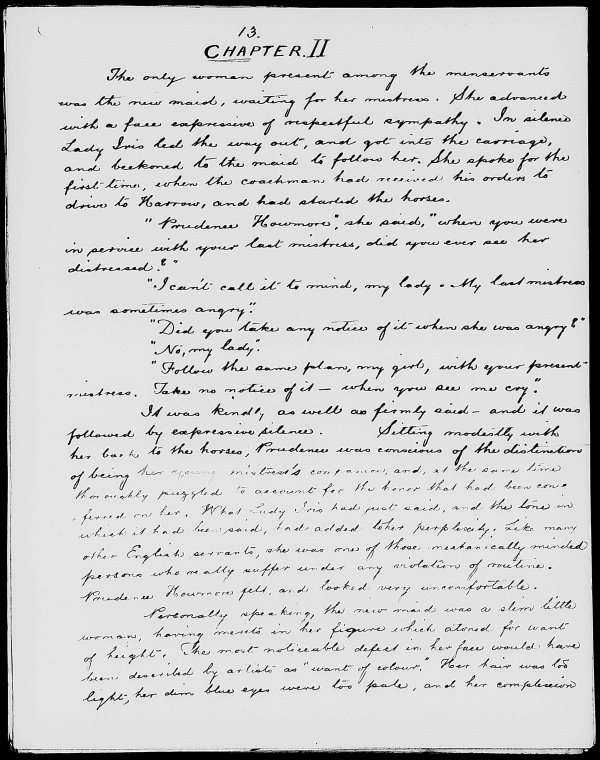 13.
CHAPTER. II
The only woman present among the menservants
was the new maid, waiting for her mistress. She advanced
with a face expressive of respectful sympathy. In silence
Lady Iris led the way out, and got into the carriage,
and beckoned to the maid to follow her. She spoke for the
first time, when the coachman had received his orders to
drive to Harrow, and had started the horses.
"Prudence Howmore", she said, "when you were
in service with your last mistress, did you ever see her
distressed?"
"I can't call it to mind, my lady. My last mistress
was sometimes angry."
"Did you take any notice of it when she was angry?"
"No, my lady".
"Follow the same plan, my girl, with your present
mistress. Take no notice of it — when you see me cry".
It was kindly as well as firmly said — and it was
followed by expressive silence. Sitting modestly with
her back to the horses, Prudence was conscious of the distinction
of being her young mistress's companion, and, at the same time
thoroughly puzzled to account for the honor that had been con=
ferred on her. What Lady Iris had just said, and the tone in
which it had been said, had added to her perplexity. Like many
other English servants, she was one of those mechanically minded
persons who really suffer under any violation of routine.
Prudence Howmore felt, and looked very uncomfortable.
Personally speaking, the new maid was a slim little
woman, having merits in her figure which atoned for want
of height. The most noticeable defect in her face would have
been described by artists as "want of colour." Her hair was too
light, her dim blue eyes were too pale, and her complexion